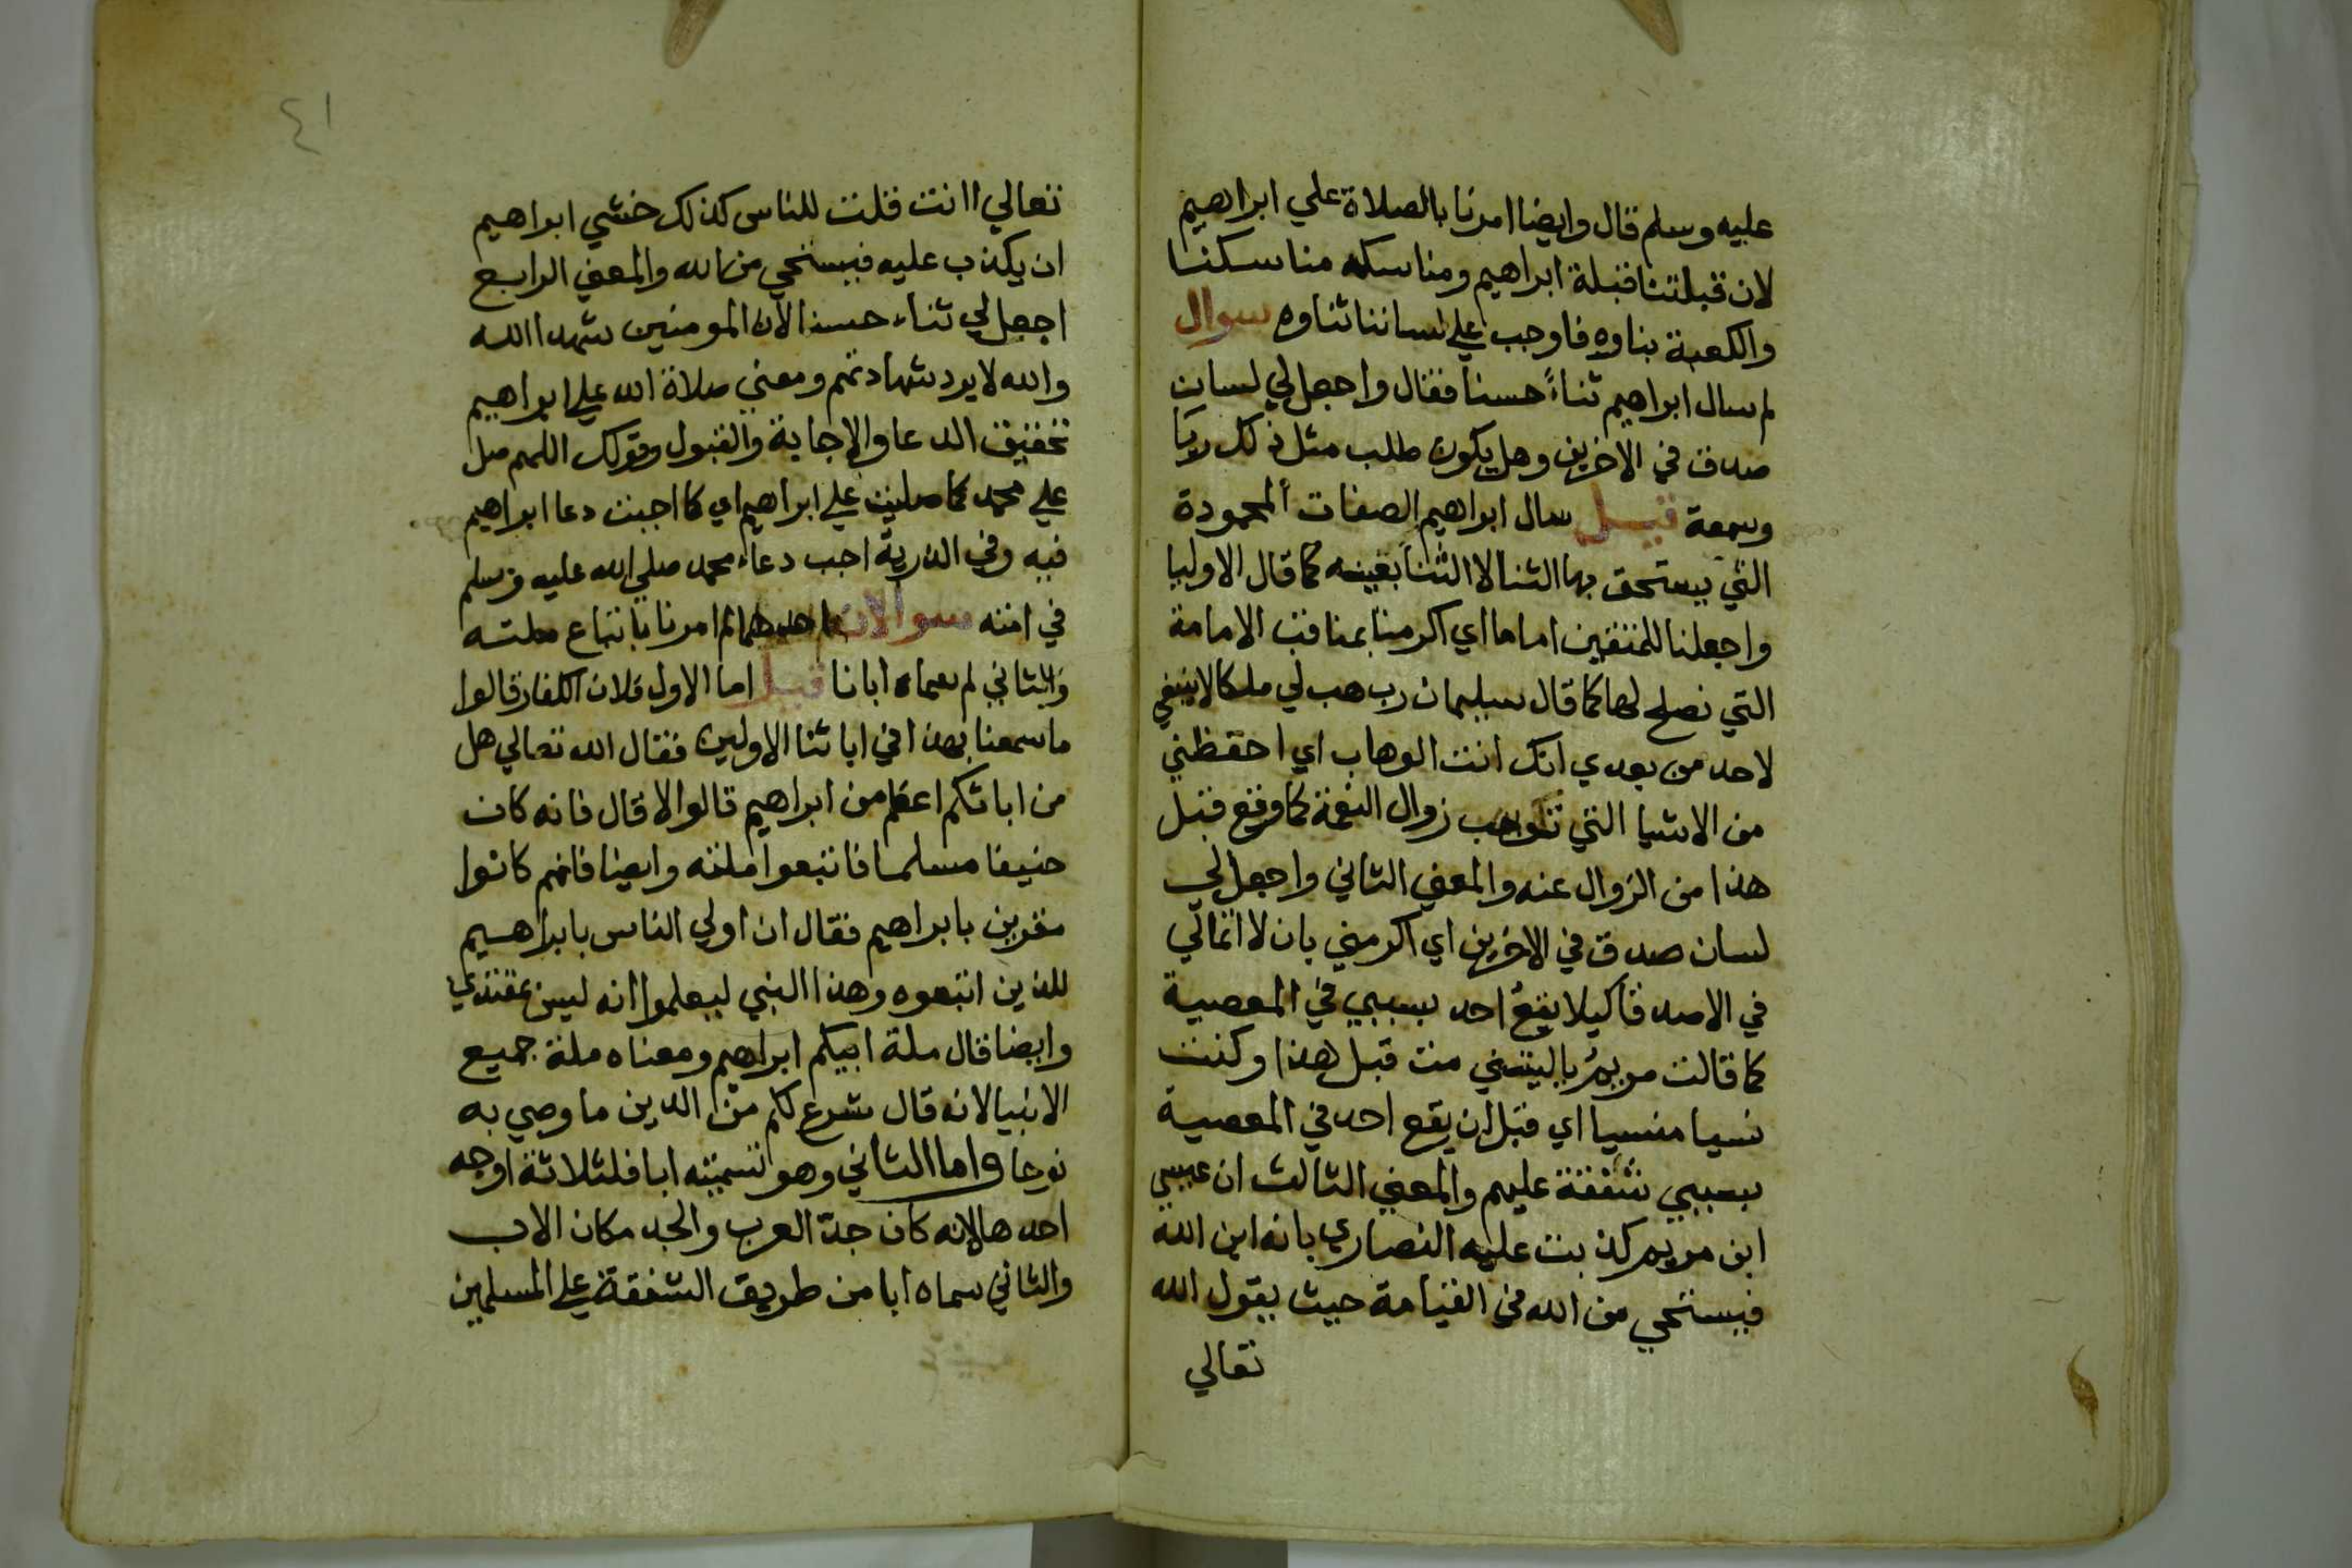 عليه وسلم قال وايضا امرنا بالصلاة علي ابراهيم
لان قبلتنا قبلة ابراهيم ومناسكه مناسكنا
والكعبة بناوه فاوجب علي لساننا ثناوه سوال
لم سال ابراهيم ثناءً حسنا فقال واجعل لي لسان
صدق في الاخرين وهل يكون طلب مثل ذلك ريا
وسمعة قيل سال ابراهيم الصفات المحمودة
التي يستحق بها الثنا لا الثنا بعينه كما قال الاوليا
واجعلنا للمتقين اماما اي اكرمنا بمناقب الامامة
التي نصلح لها كما قال سليمان رب هب لي ملكا لا ينبغي
لاحد من بعدي انك انت الوهاب اي احفظني
من الاشيا التي زوال النعمة كما وقع قبل
هذا من الزوال عنه والمعني الثاني واجعل لي
لسان صدق في الاخرين اي اكرمني بان لا
في كيلا يقع احد بسببي في المعصية
كما قالت مريم ياليتني مت قبل هذا وكنت
نسيا منسيا اي قبل ان يقع احد في المعصية
بسببي شفقة عليهم والمعني الثالث ان عيسي
ابن مريم كذبت عليه النصاري بانه ابن الله
فيستحي من الله في القيامة حيث يقول الله
تعالي
٤١
تعالي اانت قلت للناس كذلك خشي ابراهيم
ان يكذب عليه فيستحي من الله والمعني الرابع
اجعل لي ثناء حسنا لان المومنين شهدا الله
والله لا يرد شهادتهم ومعني صلاة الله علي ابراهيم
تحقيق الدعا والاجابة والقبول وقولك اللهم صل
علي محمد كما صليت علي ابراهيم اي كما اجبت دعا ابراهيم
فيه وفي الذرية اجب دعاء محمد صلي الله عليه وسلم
في امته سوالان احدهما لم امرنا باتباع ملته
والثاني لم سماه ابانا قيل اما الاول فلان الكفار قالوا
ما سمعنا بهذا في ابائنا الاولين فقال الله تعالي هل
من ابائكم اعظم من ابراهيم قالوا لا قال فانه كان
حنيفا مسلما فاتبعوا ملته وايضا فانهم كانوا
مقرين بابراهيم فقال ان اولي الناس بابراهيم
للذين اتبعوه وهذا النبي ليعلموا انه ليس بمقتدي
وايضا قال ملة ابيكم ابراهيم ومعناه ملة جميع
الانبيا لانه قال شرع لكم من الدين ما وصي به
نوحا واما الثاني وهو تسميته ابا فلثلاثة اوجه
احدها لانه كان جدّ العرب والجد مكان الاب
والثاني سماه ابا من طريق الشفقة علي المسلمين